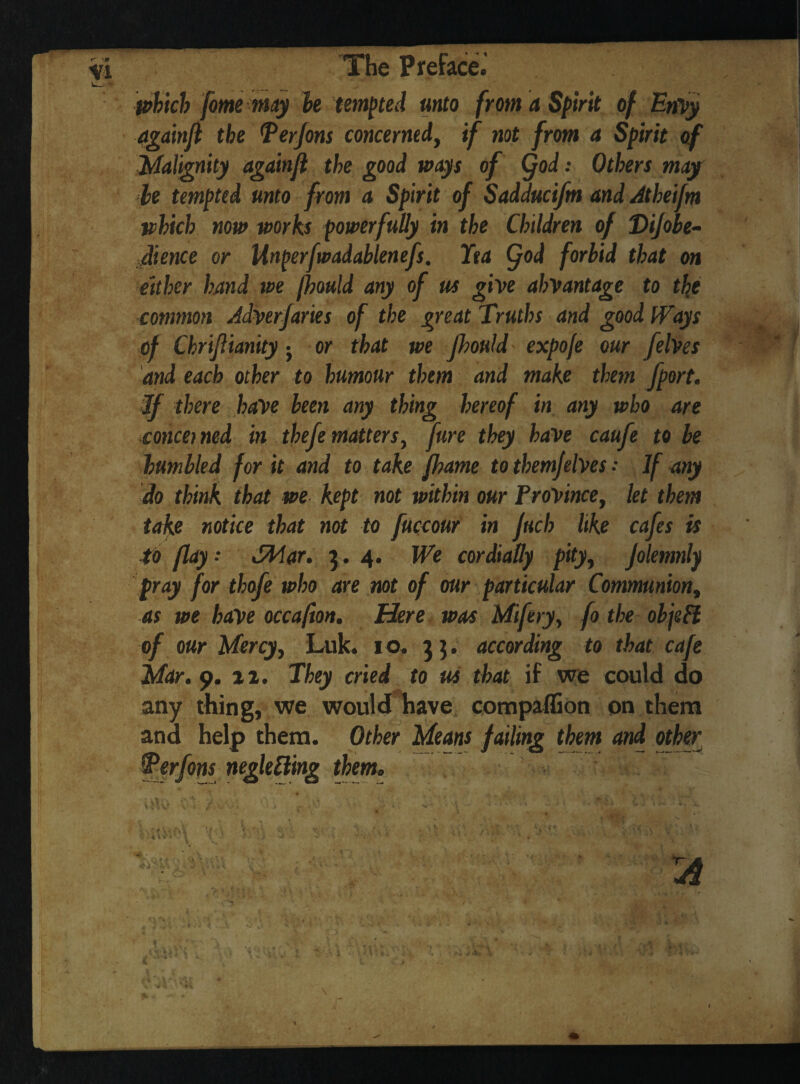 vi The Preface.
which ſome may be tempted unto from a Spirit of Envy
againſt the Perſons concerned, if not from a Spirit of
Malignity againſt the good ways of God: Others may
be tempted unto from a Spirit of Sadduciſm and Atheiſm
which now works powerfully in the Children of Diſobe-
dience or Unperſwadableneſs. Yea God forbid that on
either hand we ſhould any of us give abvantage to the
common Adverſaries of the great Truths and good Ways
of Chriſtianity; or that we ſhould expoſe our ſelves
and each other to humour them and make them ſport.
If there have been any thing hereof in any who are
concerned in theſe matters, ſure they have cauſe to be
humbled for it and to take ſhame to themſelves: If any
do think that we kept not within our Province, let them
take notice that not to ſuccour in ſuch like caſes is
to ſlay: Mar. 3. 4. We cordially pity, ſolemnly
pray for thoſe who are not of our particular Communion,
as we have occaſion. Here was Miſery, ſo the object
of our Mercy, Luk. 10. 33. according to that caſe
Mar. 9. 22. They cried to us that if we could do
any thing, we would have compaſſion on them
and help them. Other Means failing them and other
Perſons neglecting them.
A